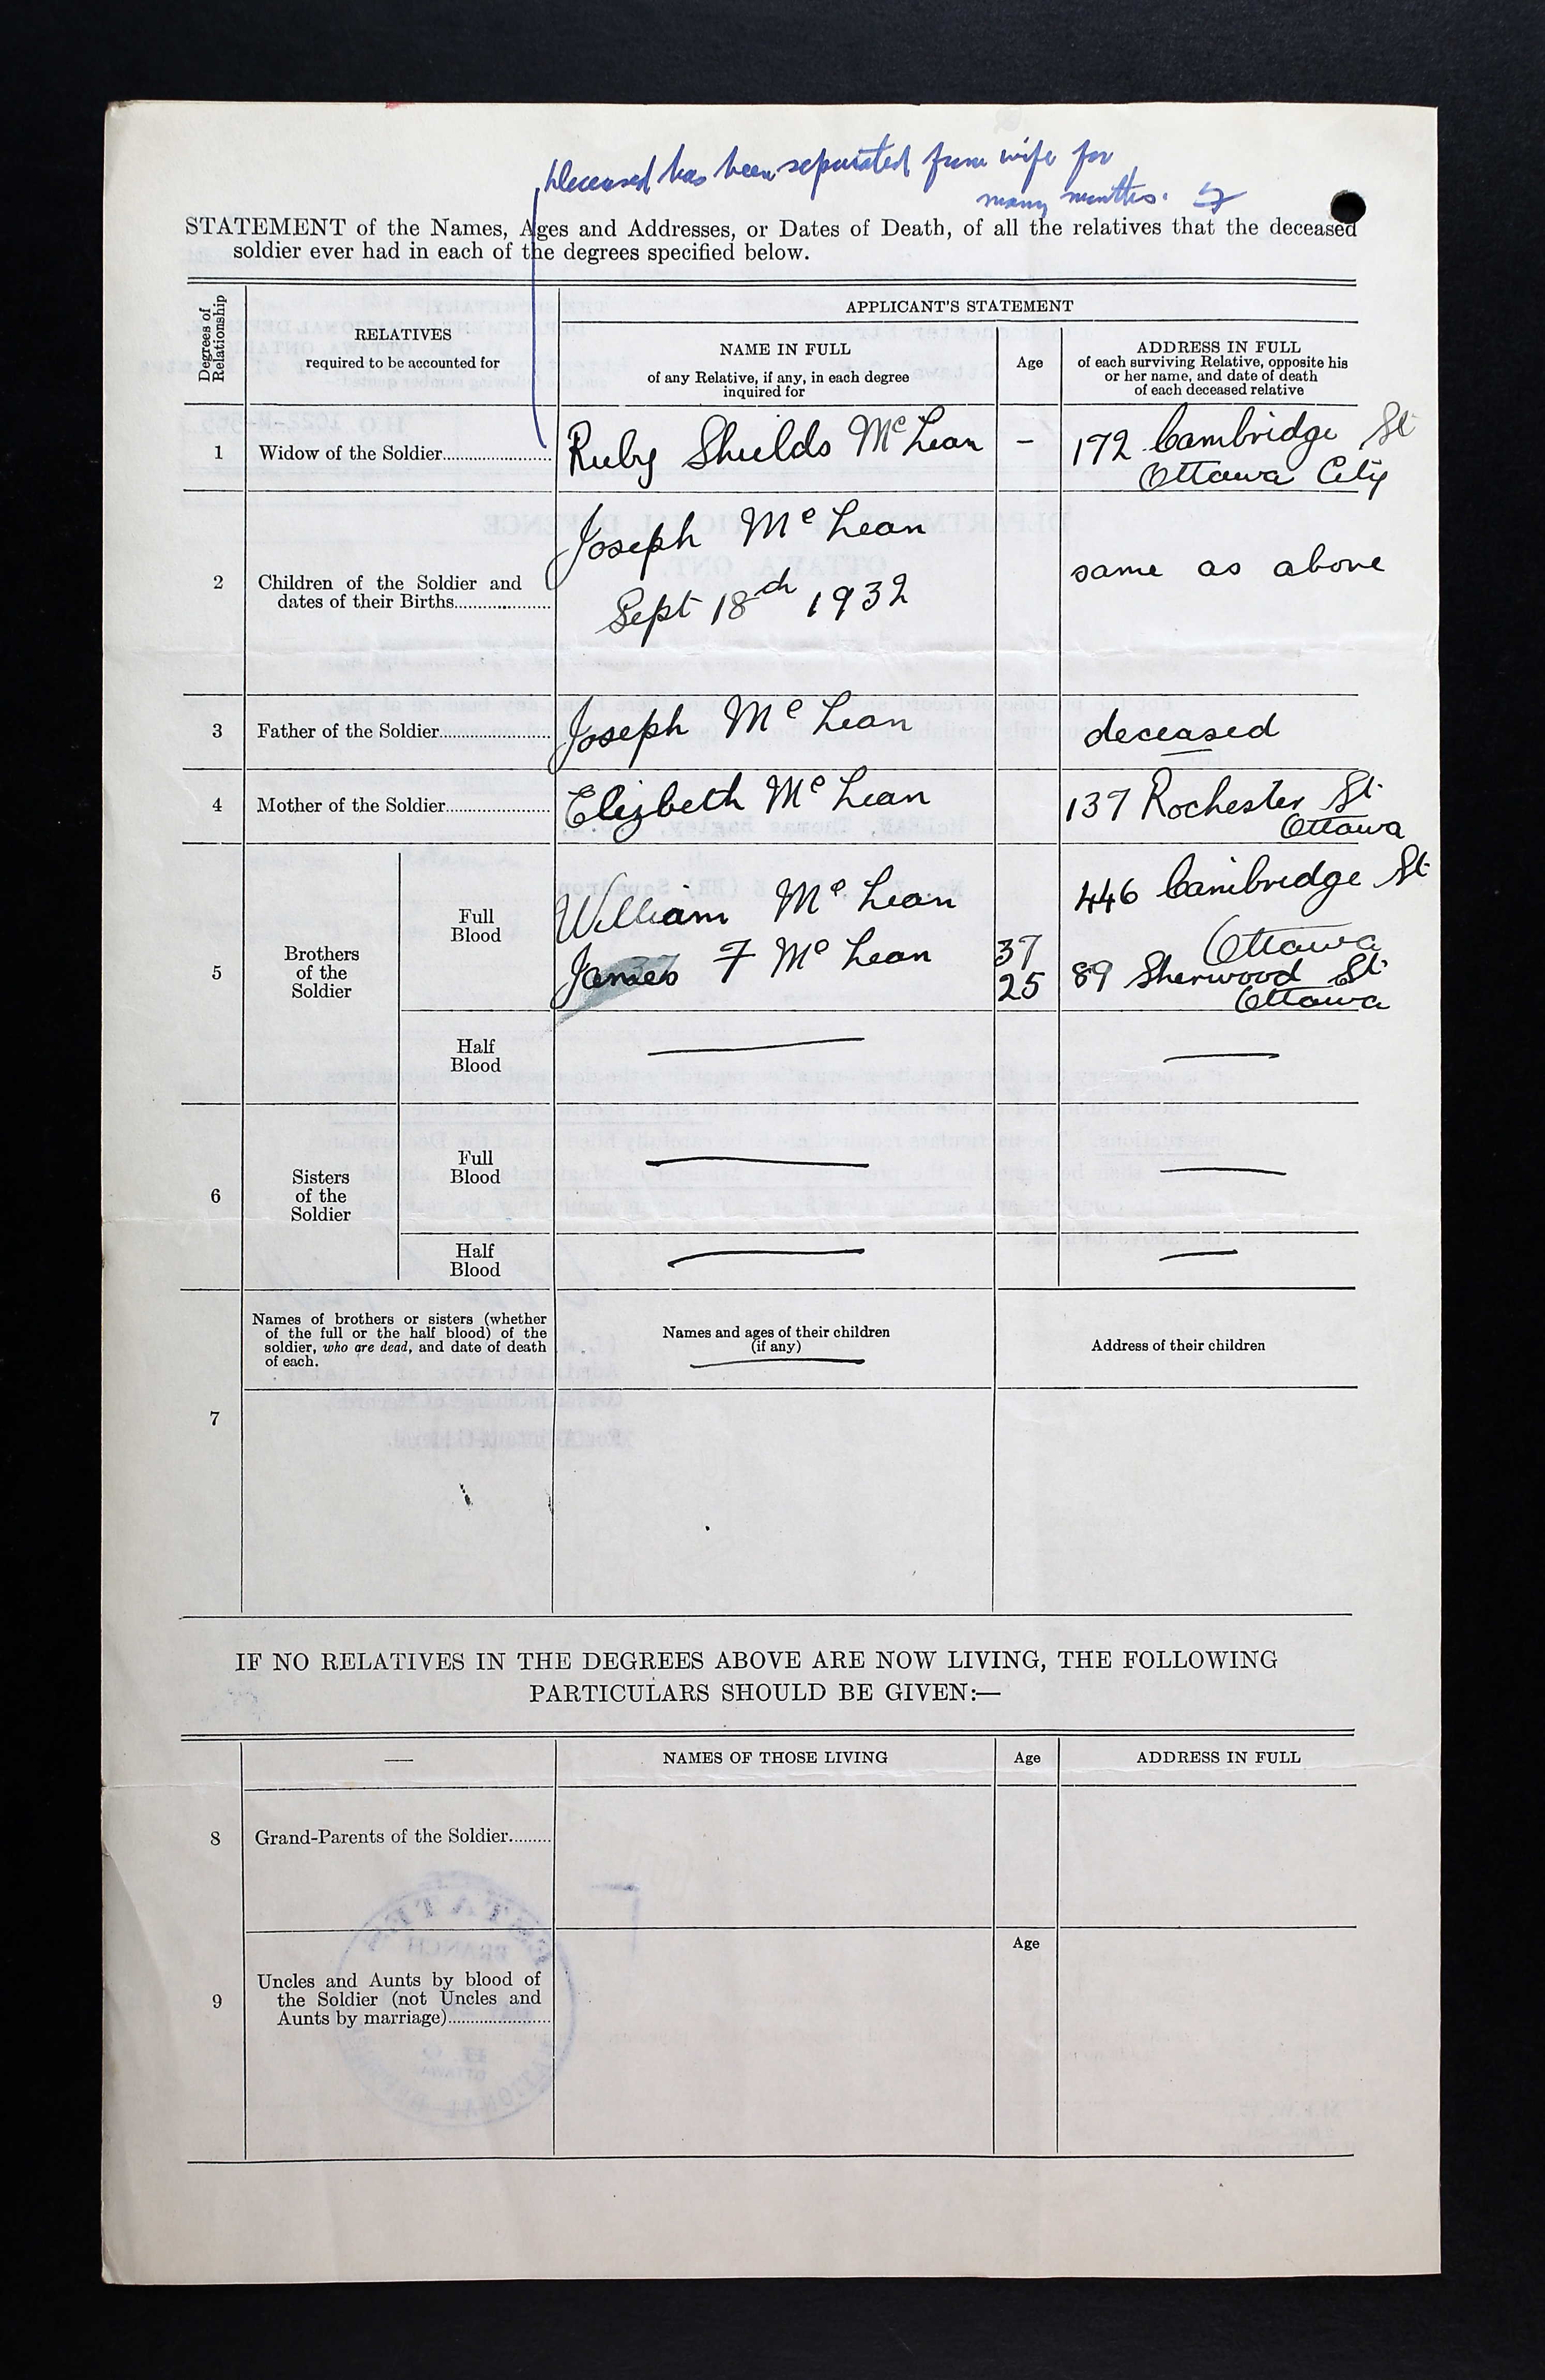 Deceased has been separated from wife for
many months.
STATEMENT of the Names, Ages and Addresses, or Dates of Death, of all the relatives that the deceased
soldier ever had in each of the degrees specified below.
Degrees of
Relationship
RELATIVES
required to be accounted for
APPLICANT'S STATEMENT
NAME IN FULL
of any Relative, if any, in each degree
inquired for
Age
ADDRESS IN FULL
of each surviving Relative, opposite his
or her name, and date of death
of each deceased relative
1 Widow of the Soldier Ruby Shields McLean – 172 Cambridge St
Ottawa City
2 Children of the Soldier and
dates of their Births
Joseph McLean
Sept 18th 1932
same as above
3 Father of the Soldier Joseph McLean deceased
4 Mother of the Soldier Elizbeth McLean 137 Rochester St.
Ottawa
5 Brothers
of the
Soldier
Full
Blood
William McLean 37 446 Cambridge St
Ottawa
James F McLean 25 89 Sherwood St.
Ottawa
Half
Blood
6 Sisters
of the
Soldier
Full
Blood
Half
Blood
7
Names of brothers or sisters (whether
of the full or the half blood) of the
soldier, who are dead, and date of death
of each.
Names and ages of their children
(if any)
Address of their children
IF NO RELATIVES IN THE DEGREES ABOVE ARE NOW LIVING, THE FOLLOWING
PARTICULARS SHOULD BE GIVEN:—
— NAMES OF THOSE LIVING Age ADDRESS IN FULL
8 Grand-Parents of the Soldier
Age
9 Uncles and Aunts by blood of
the Soldier (not Uncles and
Aunts by marriage)